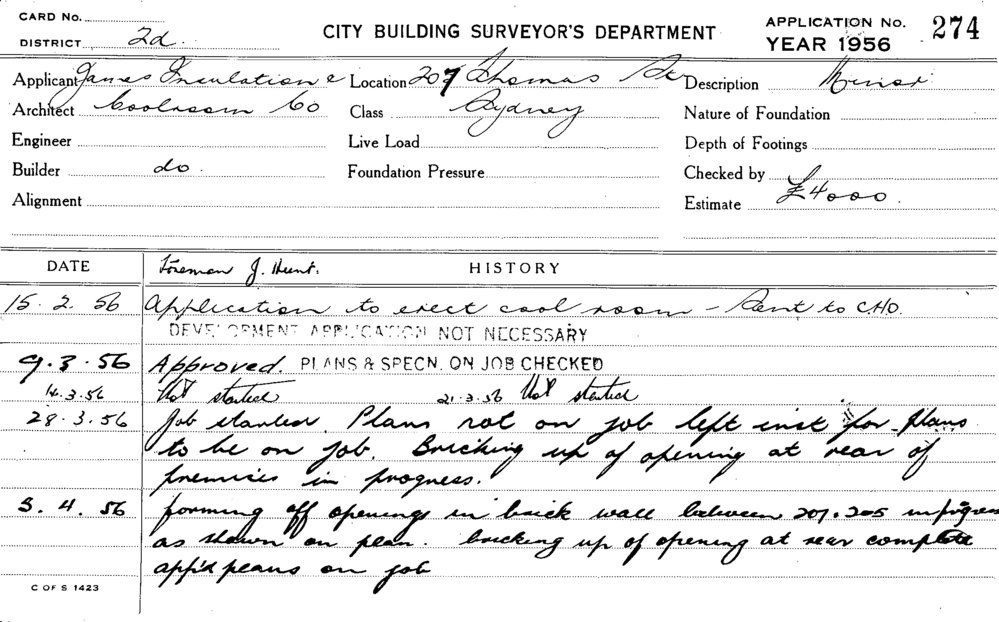 CARD No.
DISTRICT 2d.
CITY BUILDING SURVEYOR'S DEPARTMENT
APPLICATION No. 274
YEAR 1956
Applicant James Insulation & Location 207 Thomas St Description Minor
Architect Coolroom Co Class Sydney Nature of Foundation
Engineer Live Load Depth of Footings
Builder do. Foundation Pressure Checked by
Alignment Estimate £4000.
DATE Foreman J. Hunt. HISTORY
15.2.56 Application to erect cool room – Sent to C.H.O.
DEVELOPMENT APPLICATION NOT NECESSARY
9.3.56 Approved. PLANS & SPECN. ON JOB CHECKED
14.3.56 Not started 21.3.56 Not started
28.3.56 Job started. Plans not on job left inst for plans
to be on job. Bricking up of opening at rear of
premises in progress.
3.4.56 forming off openings in brick wall between 207.205 in progress
as shown on plan. bricking up of opening at rear complete
app'd plans on job
C OF S 1423